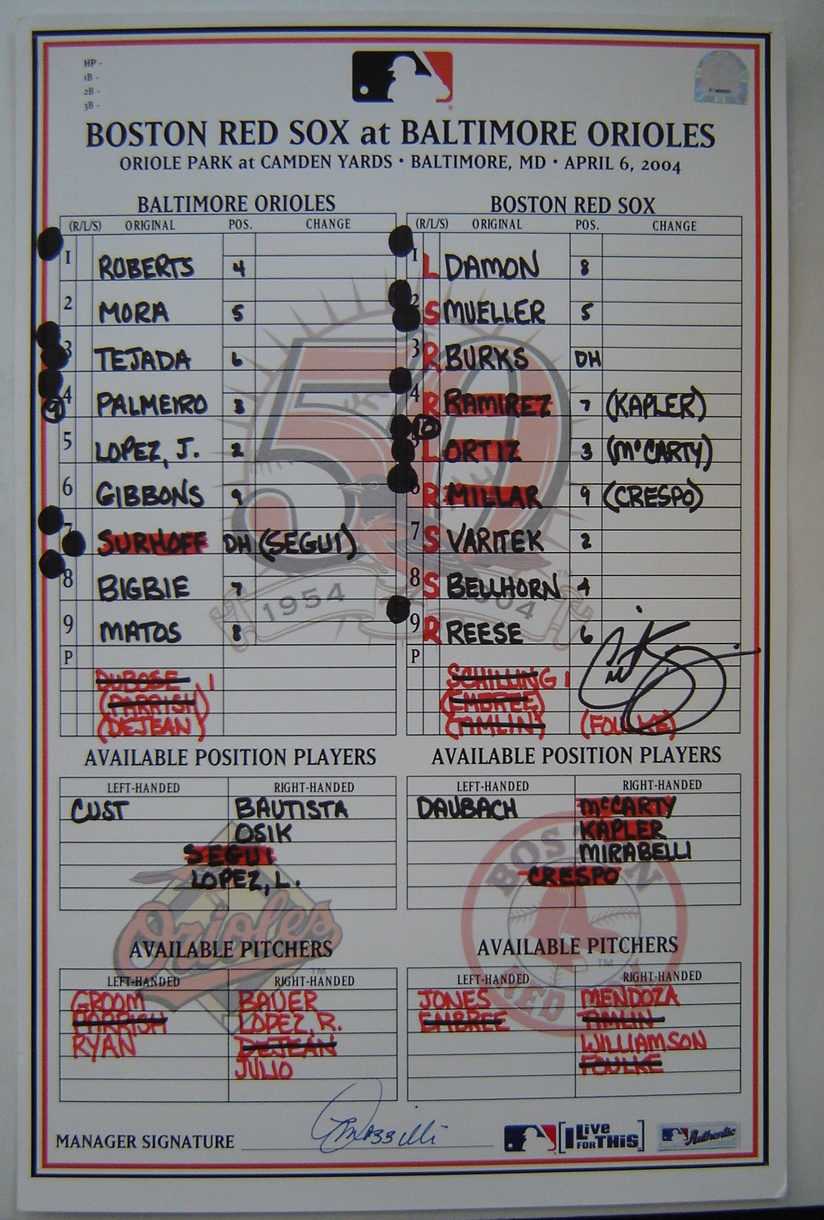 HP -
1B -
2B -
3B -
BOSTON RED SOX at BALTIMORE ORIOLES
ORIOLE PARK at CAMDEN YARDS • BALTIMORE, MD • APRIL 6, 2004
BALTIMORE ORIOLES
(R/L/S) ORIGINAL POS. CHANGE
1 ROBERTS 4
2 MORA 5
3 TEJADA 6
4 PALMEIRO 3
5 LOPEZ, J. 2
6 GIBBONS 9
7 SURHOFF DH (SEGUI)
8 BIGBIE 7
9 MATOS 8
P
DUBOSE 1
(PARRISH)
(DEJEAN)
BOSTON RED SOX
(R/L/S) ORIGINAL POS. CHANGE
1 L DAMON 8
2 S MUELLER 5
3 R BURKS DH
4 R RAMIREZ 7 (KAPLER)
10
L ORTIZ 3 (McCARTY)
6 R MILLAR 9 (CRESPO)
7 S VARITEK 2
8 S BELLHORN 4
9 R REESE 6
P
SCHILLING 1
(EMBREE)
(TIMLIN) (FOULKE)
50
1954 2004
AVAILABLE POSITION PLAYERS
LEFT-HANDED RIGHT-HANDED
CUST BAUTISTA
OSIK
SEGUI
LOPEZ, L.
AVAILABLE POSITION PLAYERS
LEFT-HANDED RIGHT-HANDED
DAUBACH McCARTY
KAPLER
MIRABELLI
CRESPO
Orioles
BOSTON
RED
AVAILABLE PITCHERS
LEFT-HANDED RIGHT-HANDED
GROOM BAUER
PARRISH LOPEZ, R.
RYAN DEJEAN
JULIO
AVAILABLE PITCHERS
LEFT-HANDED RIGHT-HANDED
JONES MENDOZA
EMBREE TIMLIN
WILLIAMSON
FOULKE
MANAGER SIGNATURE
I Live FOR THIS
Authentic